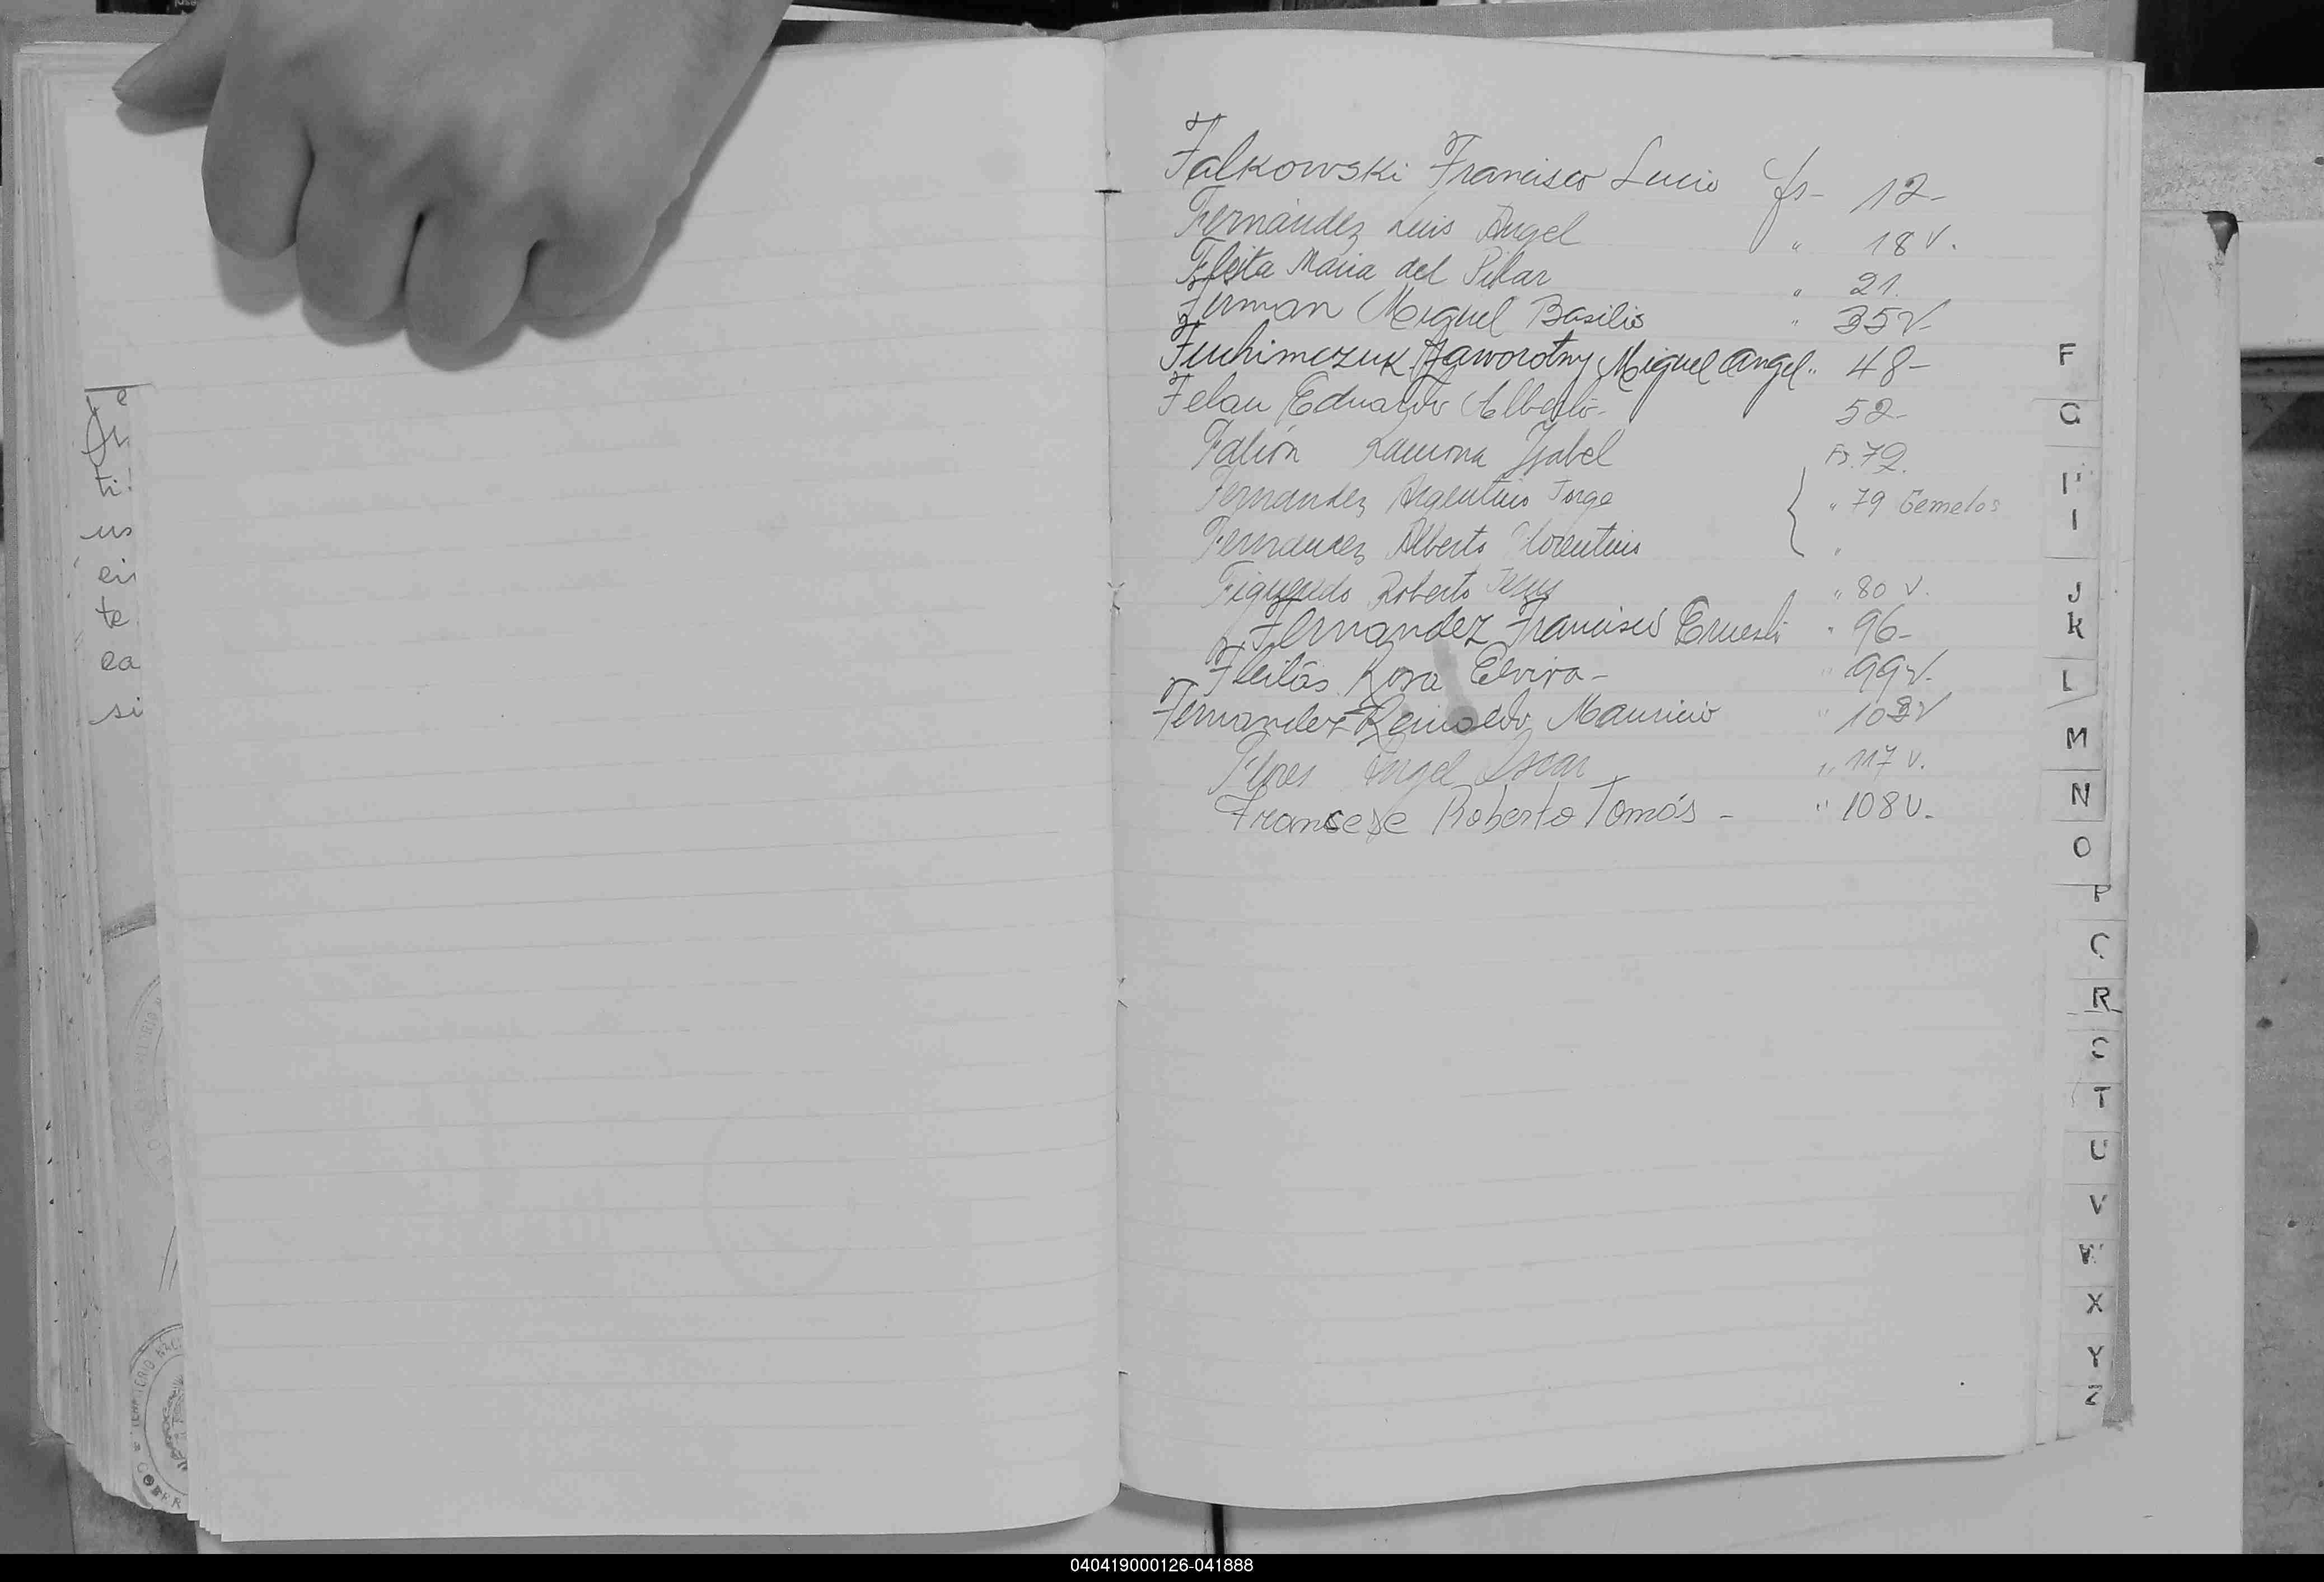 Falkowski Francisco Lucio fs- 12-
Fernández Luis Angel " 18 v.
Fleita Maria del Pilar " 21.
Firman Miguel Basilio " 35v-
Fiuchimczuk Jaworotny Miguel Angel " 48-
Felau Eduardo Alberto- 52-
Falión Ramona Isabel Fs. 72.
Fernandez Argentino Jorge " 79 Gemelos
Fernandez Alberto Florentino "
Figueredo Roberto Jesus " 80 v.
Fernandez Francisco Ernesto " 96-
Fleitas Rosa Elvira- " 99v-
Fernandez Reinaldo Mauricio " 103v
Flores Angel Oscar " 117 v.
Francese Roberto Tomás - " 108v.
F
G
H
I
J
K
L
M
N
O
P
R
T
U
V
W
X
Y
Z
040419000126-041888